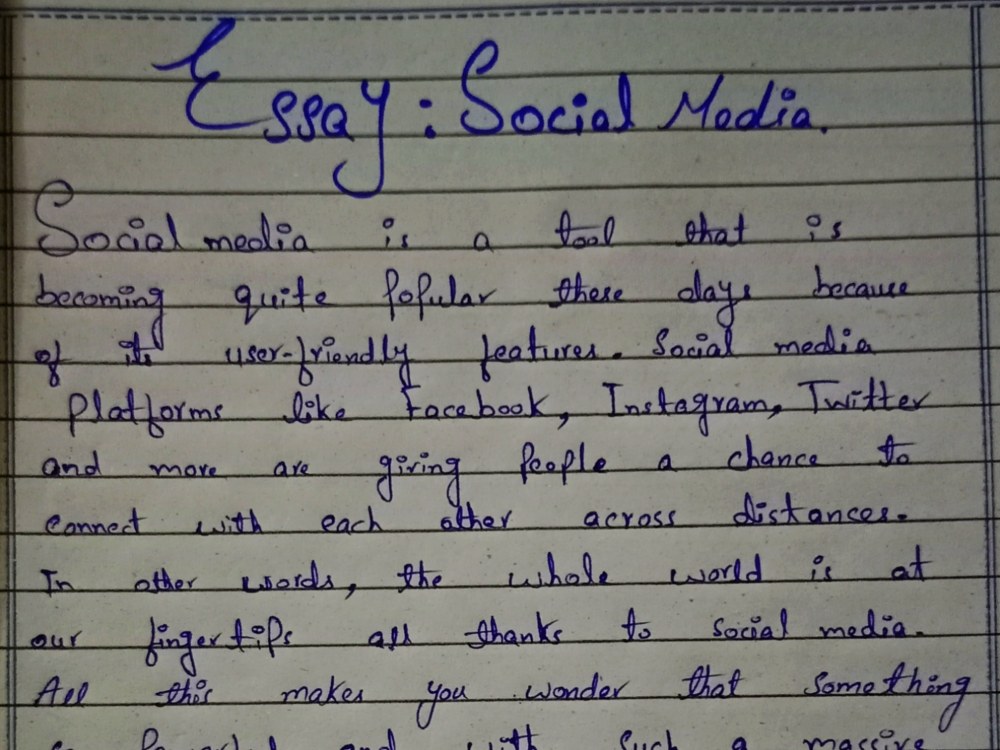 Essay: Social Media.
Social media is a tool that is
becoming quite popular these days because
of its user-friendly features. Social media
Platforms like Facebook, Instagram, Twitter
and more are giving people a chance to
connect with each other across distances.
In other words, the whole world is at
our fingertips all thanks to social media.
All this makes you wonder that something
so Powerful and with such a massive